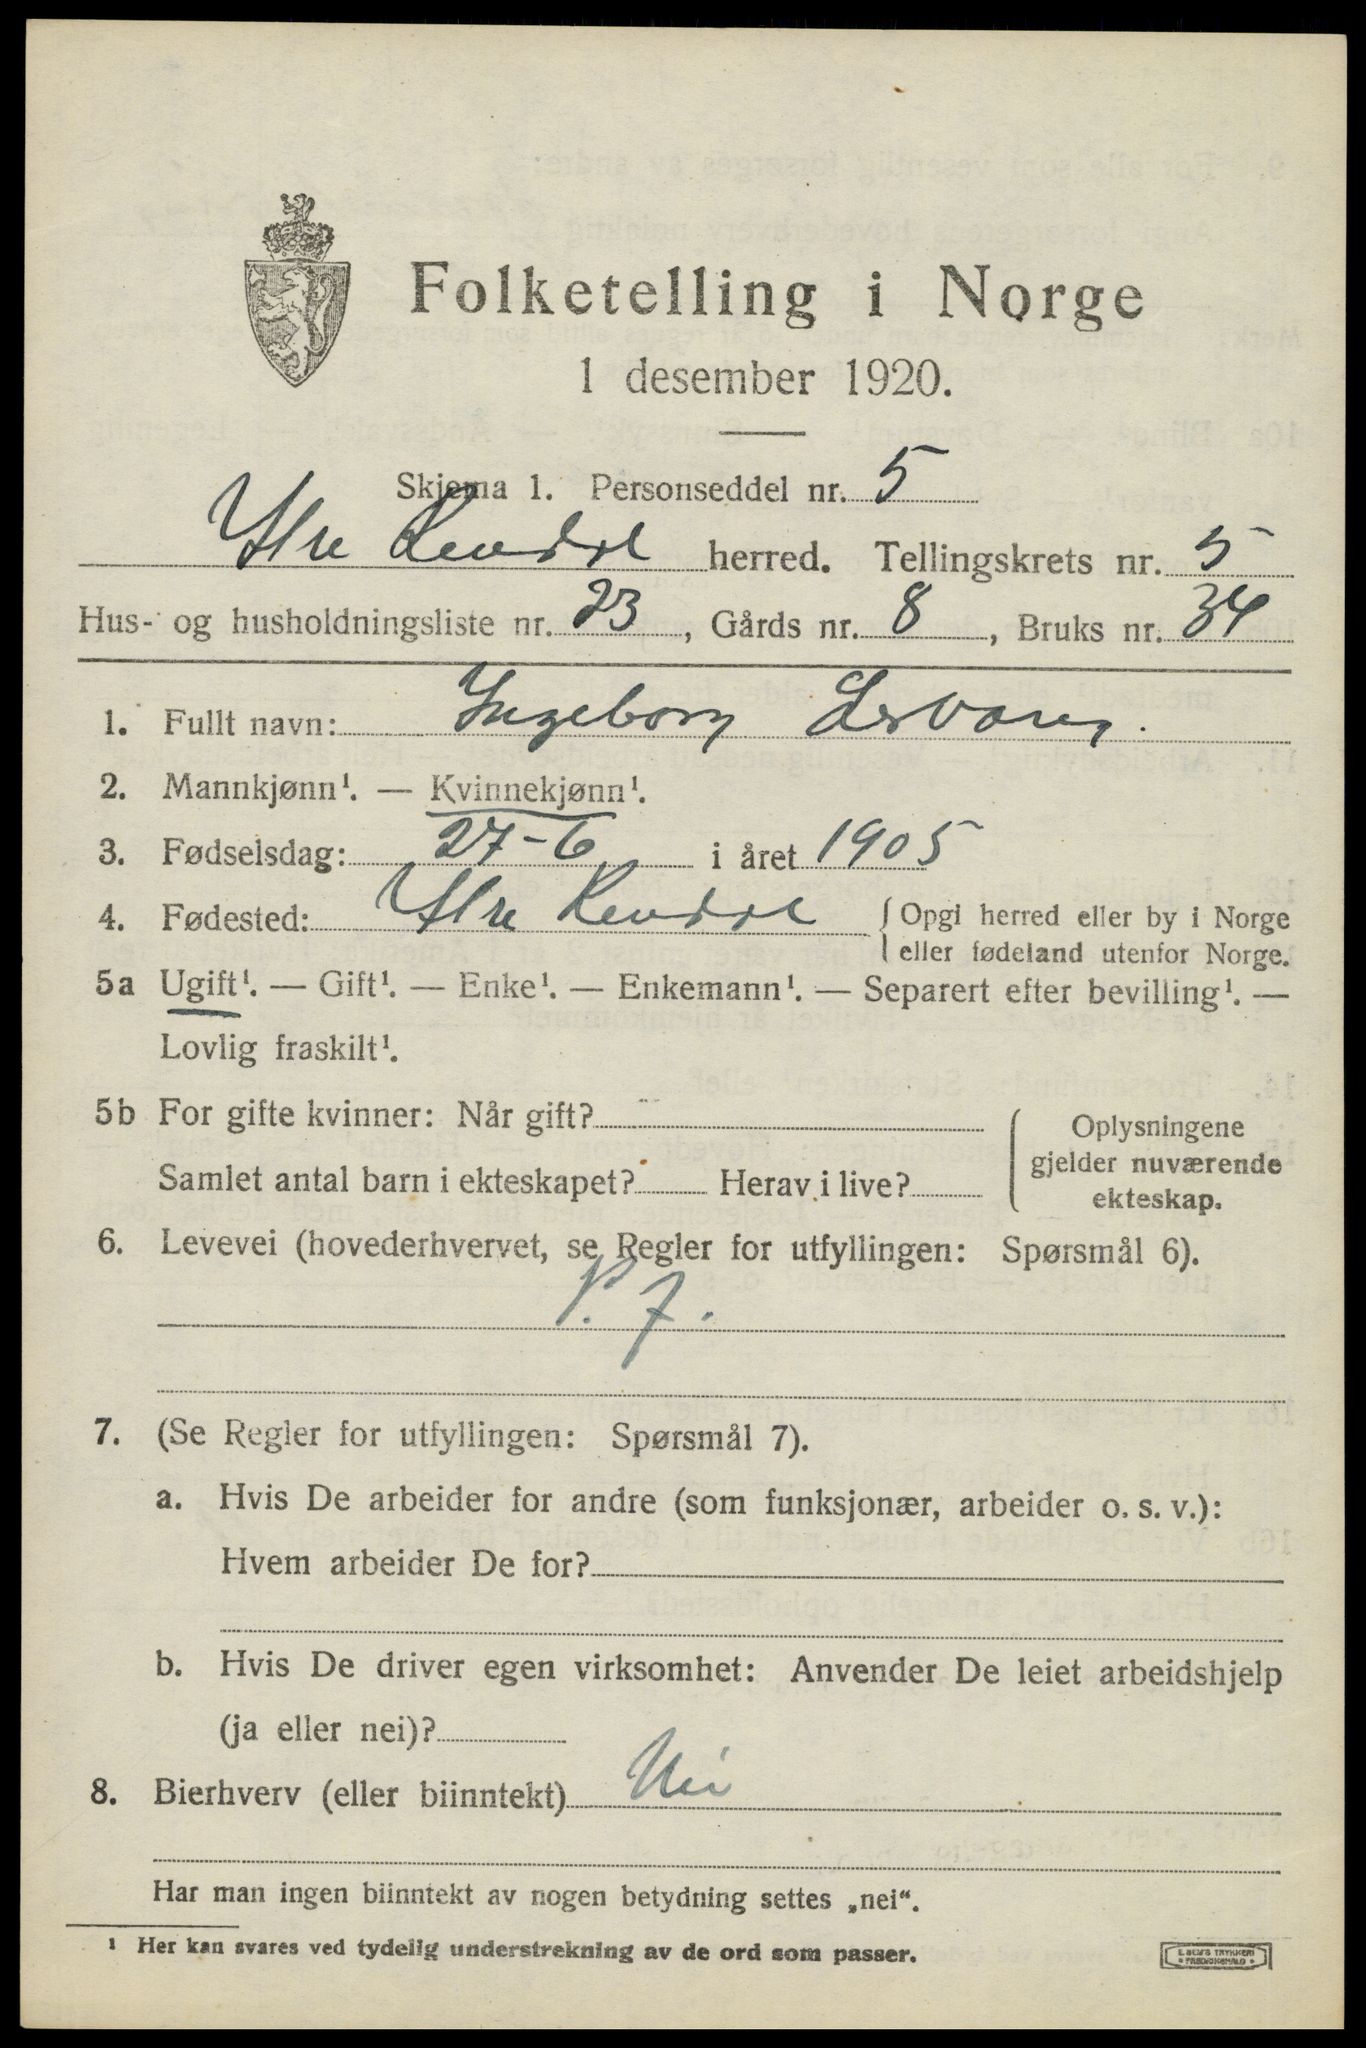 Folketelling i Norge
1 desember 1920.
Skjema 1. Personseddel nr. 5
Ytre Rendal herred. Tellingskrets nr. 5
Hus- og husholdningsliste nr. 23, Gårds nr. 8, Bruks nr. 34
1. Fullt navn: Ingeborg
2. Mannkjønn¹. — Kvinnekjønn¹.
3. Fødselsdag: 27-6 i året 1905
4. Fødested: Ytre Rendal { Opgi herred eller by i Norge
eller fødeland utenfor Norge.
5a Ugift¹. — Gift¹. — Enke¹. — Enkemann¹. — Separert efter bevilling¹. —
Lovlig fraskilt¹.
5b For gifte kvinner: Når gift?
Samlet antal barn i ekteskapet? Herav i live?
Oplysningene
gjelder nuværende
ekteskap.
6. Levevei (hovederhvervet, se Regler for utfyllingen: Spørsmål 6).
7. (Se Regler for utfyllingen: Spørsmål 7).
a. Hvis De arbeider for andre (som funksjonær, arbeider o. s. v.):
Hvem arbeider De for?
b. Hvis De driver egen virksomhet: Anvender De leiet arbeidshjelp
(ja eller nei)?
8. Bierhverv (eller biinntekt) Nei
Har man ingen biinntekt av nogen betydning settes „nei“.
¹ Her kan svares ved tydelig understrekning av de ord som passer.